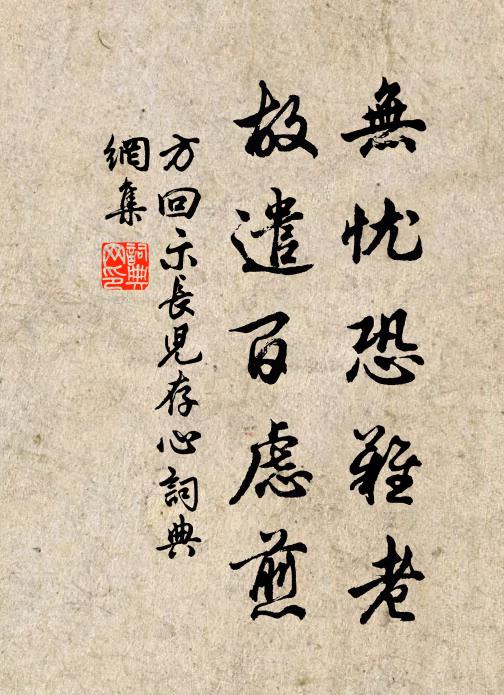 無忧恐難老
故遣百慮煎
方回示長児存心詞典
網集
詞典网印